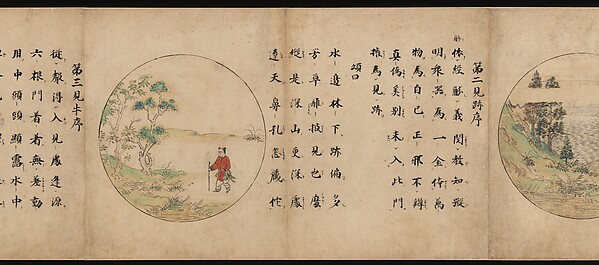 第二見跡序
依經解義閲教知蹤
明衆器為一金体萬
物為自己正邪不辨
真偽奚別未入此門
權為見跡
頌曰
水邊林下跡偏多
芳草離披見也麼
縱是深山更深處
遼天鼻孔怎藏佗
第三見牛序
從聲得入見處逢源
六根門着着無差動
用中頭頭顕露水中